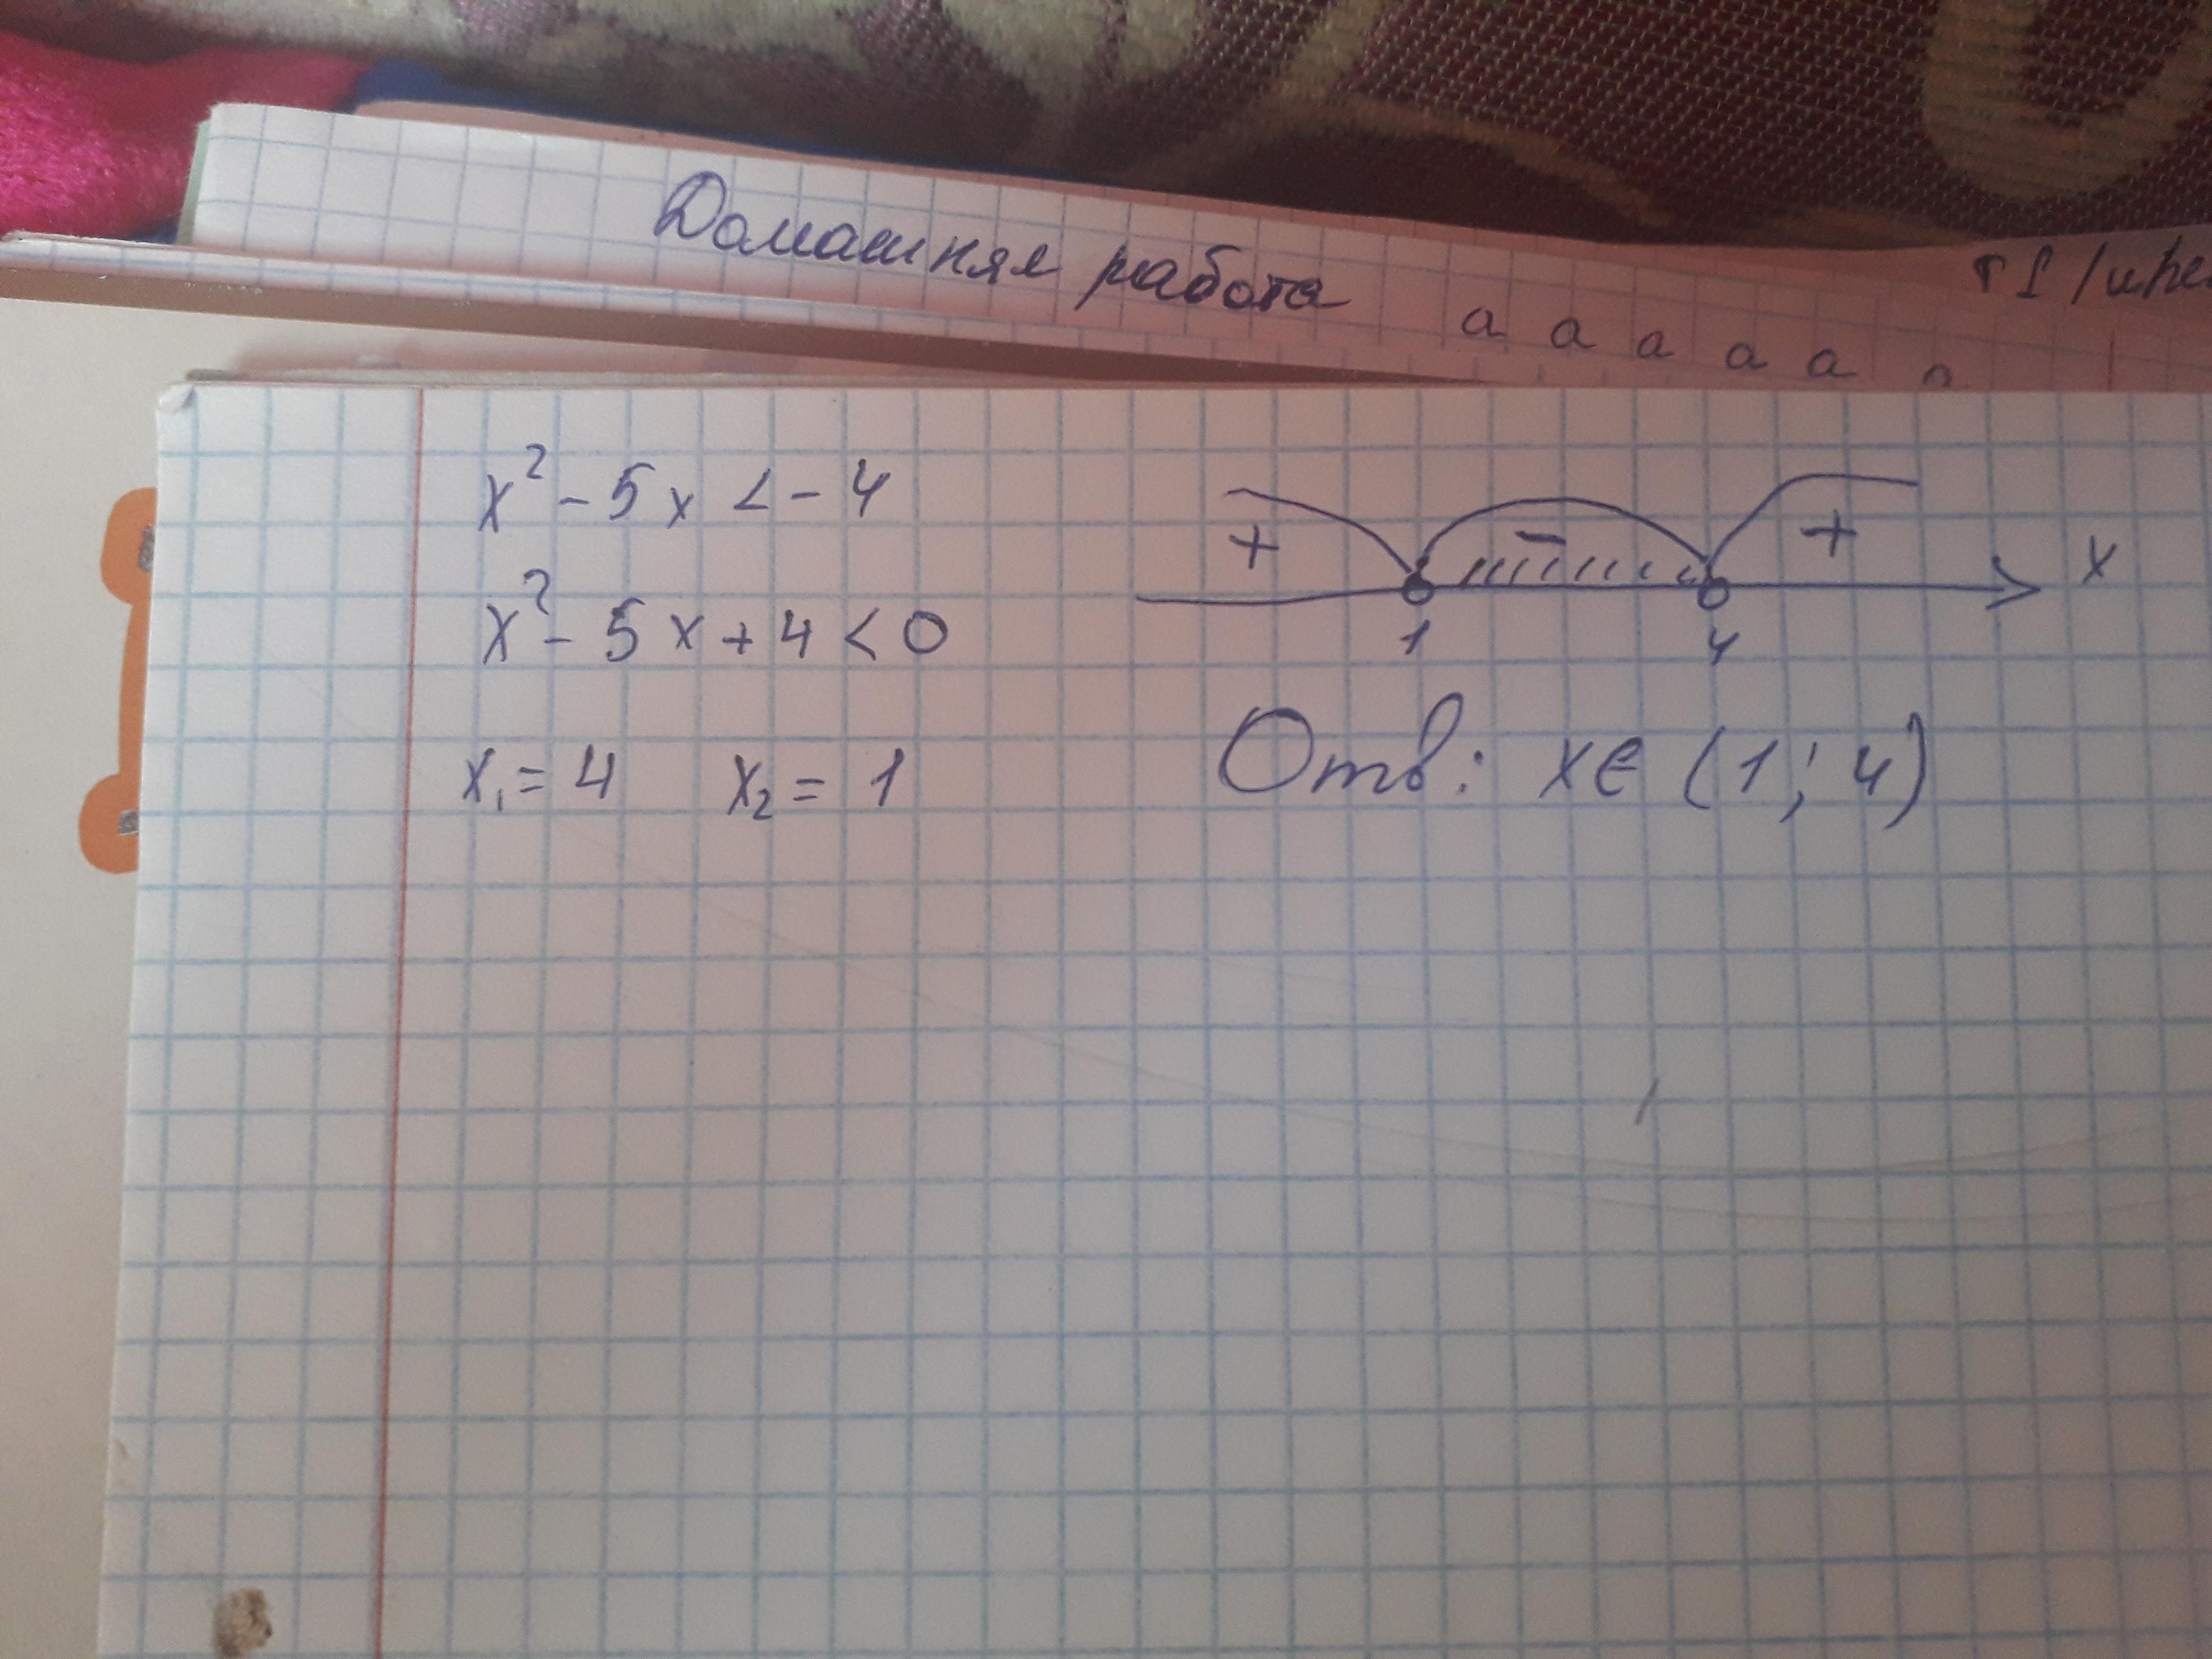 Домашняя работа
а а а а а
x² - 5x < - 4
x² - 5x + 4 < 0
x₁ = 4 x₂ = 1
+ - + x
1 4
Отв: x∈ (1; 4)